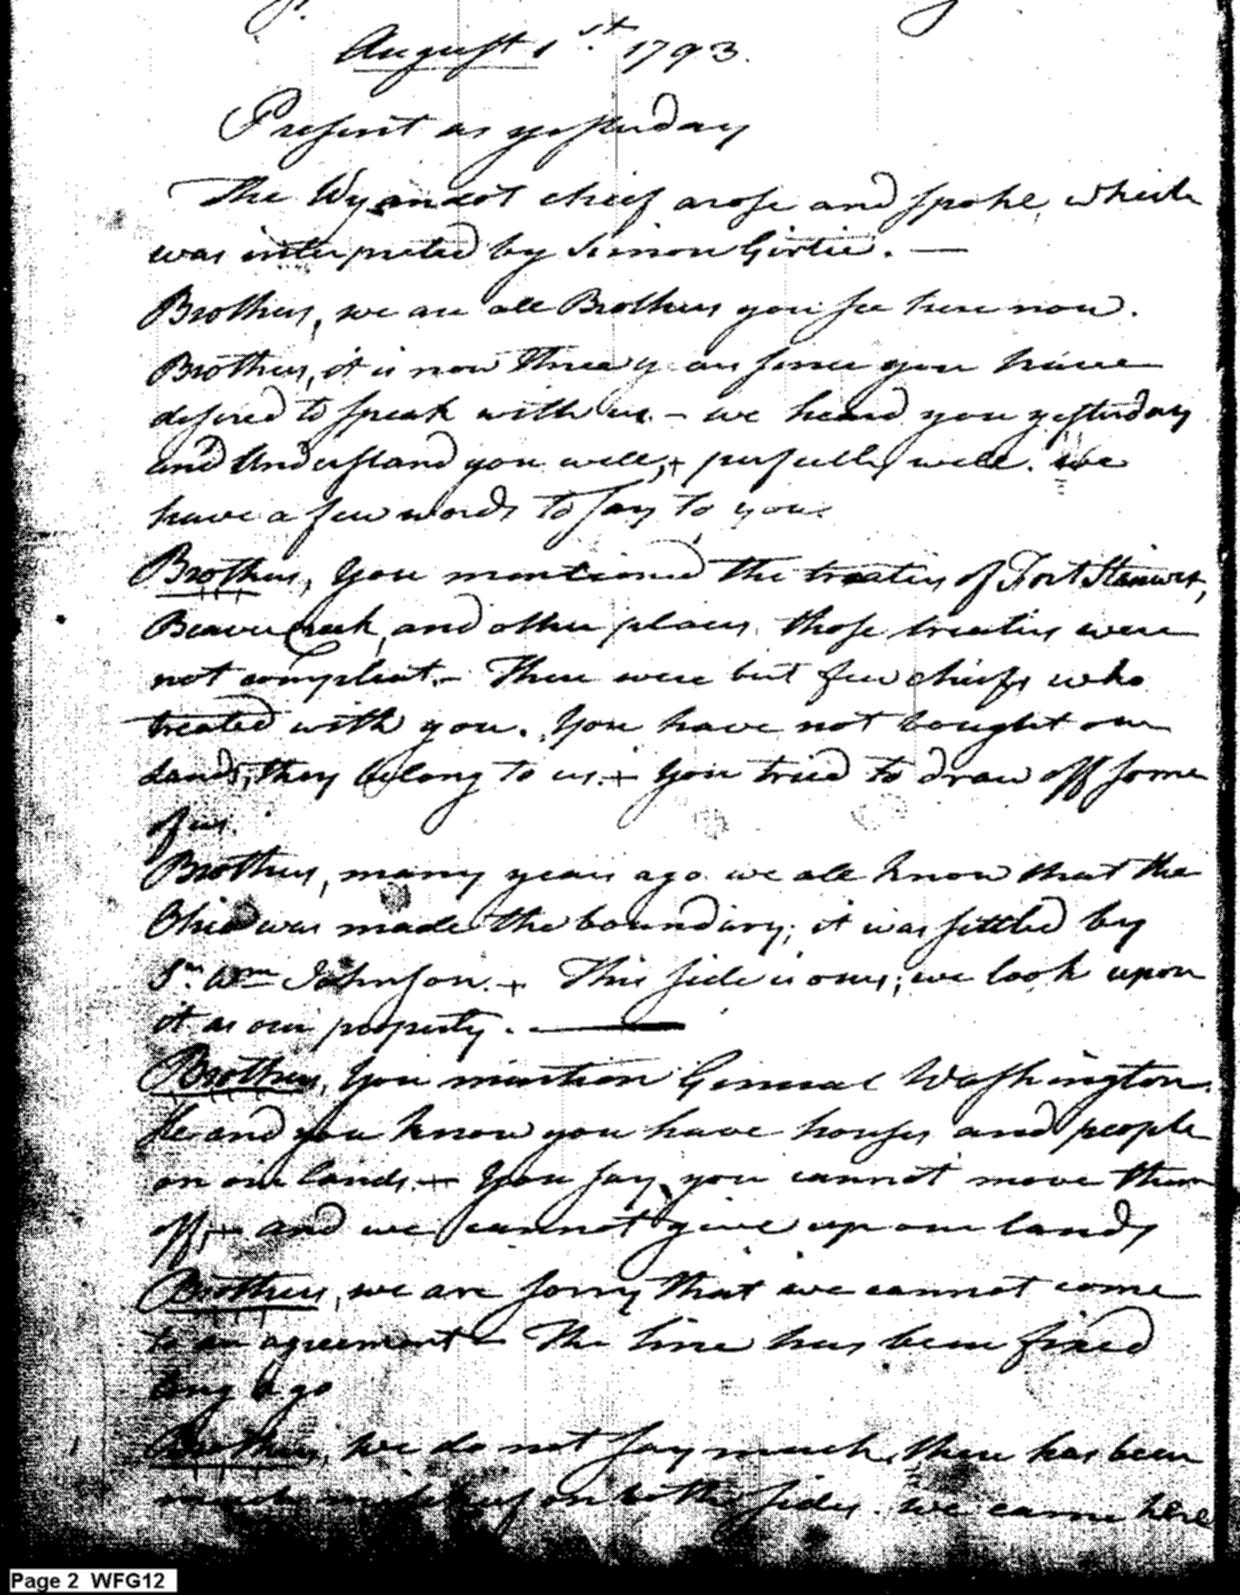 August 1st. 1793.
Present as yesterday
The Wyandot chief arose and spoke, which
was interpreted by Simon Girtie. —
Brothers, we are all Brothers you see here now.
Brothers, it is now three years since you have
desired to speak with us. – we heard you yesterday
and Understand you well, + perfectly well. we
have a few words to say to you.
Brothers, You mentioned the treaties of Fort Stanwix,
Beaver Creek, and other places. those treaties were
not compleat. – There were but few chiefs who
treated with you. You have not bought our
Lands, they belong to us. + You tried to draw off some
of us.
Brothers, many years ago we all know that the
Ohio was made the boundary; it was settled by
Sr. Wm Johnson. + This side is ours; we look upon
it as our property. —
Brothers, You mention General Washington.
He and you know you have houses and people
on our lands. + You say you cannot move them
off, + and we cannot give up our lands
Brothers, we are sorry that we cannot come
to an agreement – The line has been fixed
long ago
Brothers, We do not say much, there has been
much mischief on both sides. we came here
Page 2 WFG12